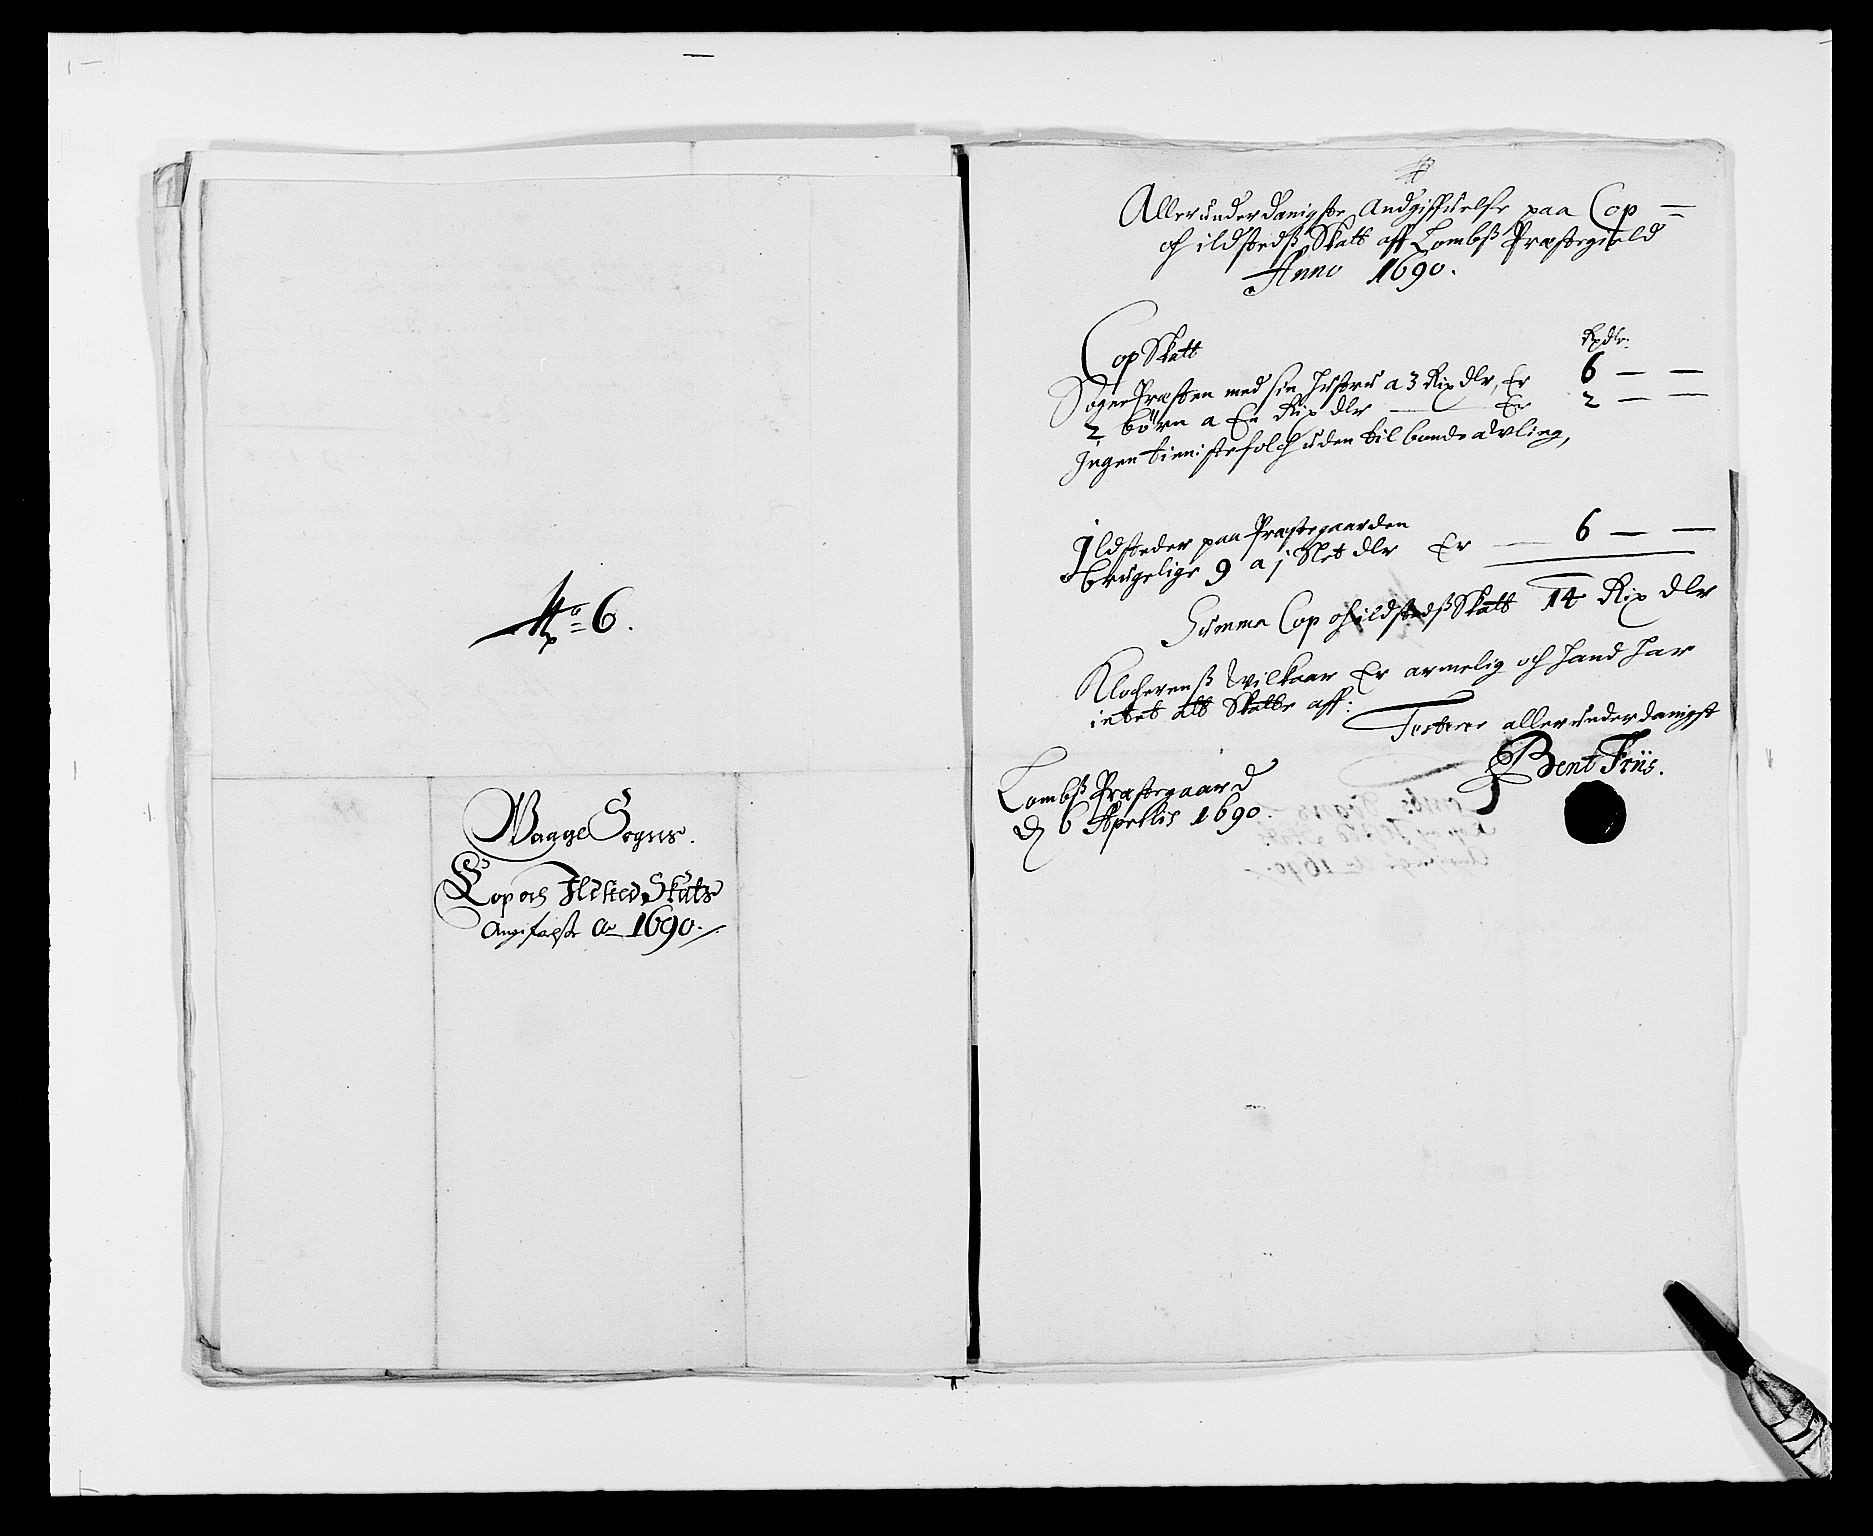 No 6.
Waage Sogns.
Cop och Ildsted Skats
Angifvelse Ao 1690.
Allerunderdanigste Andgiffuelse paa Cop =
och ildstedß Skatt aff Lombß Præstegield
Anno 1690.
Cop Skatt
Rixdlr.
Sogne Præsten med sin hustru a 3 Rix dlr, Er 6 — —
2 börn a En Rix dlr — Er 2 — —
Ingen tienistefolch uden til bonde avling,
Ildsteder paa Præstegaarden
brugelige 9 a j Slet dlr Er — 6 — —
Summa Cop och ildstedß Skatt 14 Rix dlr
Klocherenß Wilkaar Er armelig och hand har
intet att Skatte aff:
Testerer allerunderdanigst
Bent Friis.
Lombß Præstegaard
d 6 Aprilis 1690.